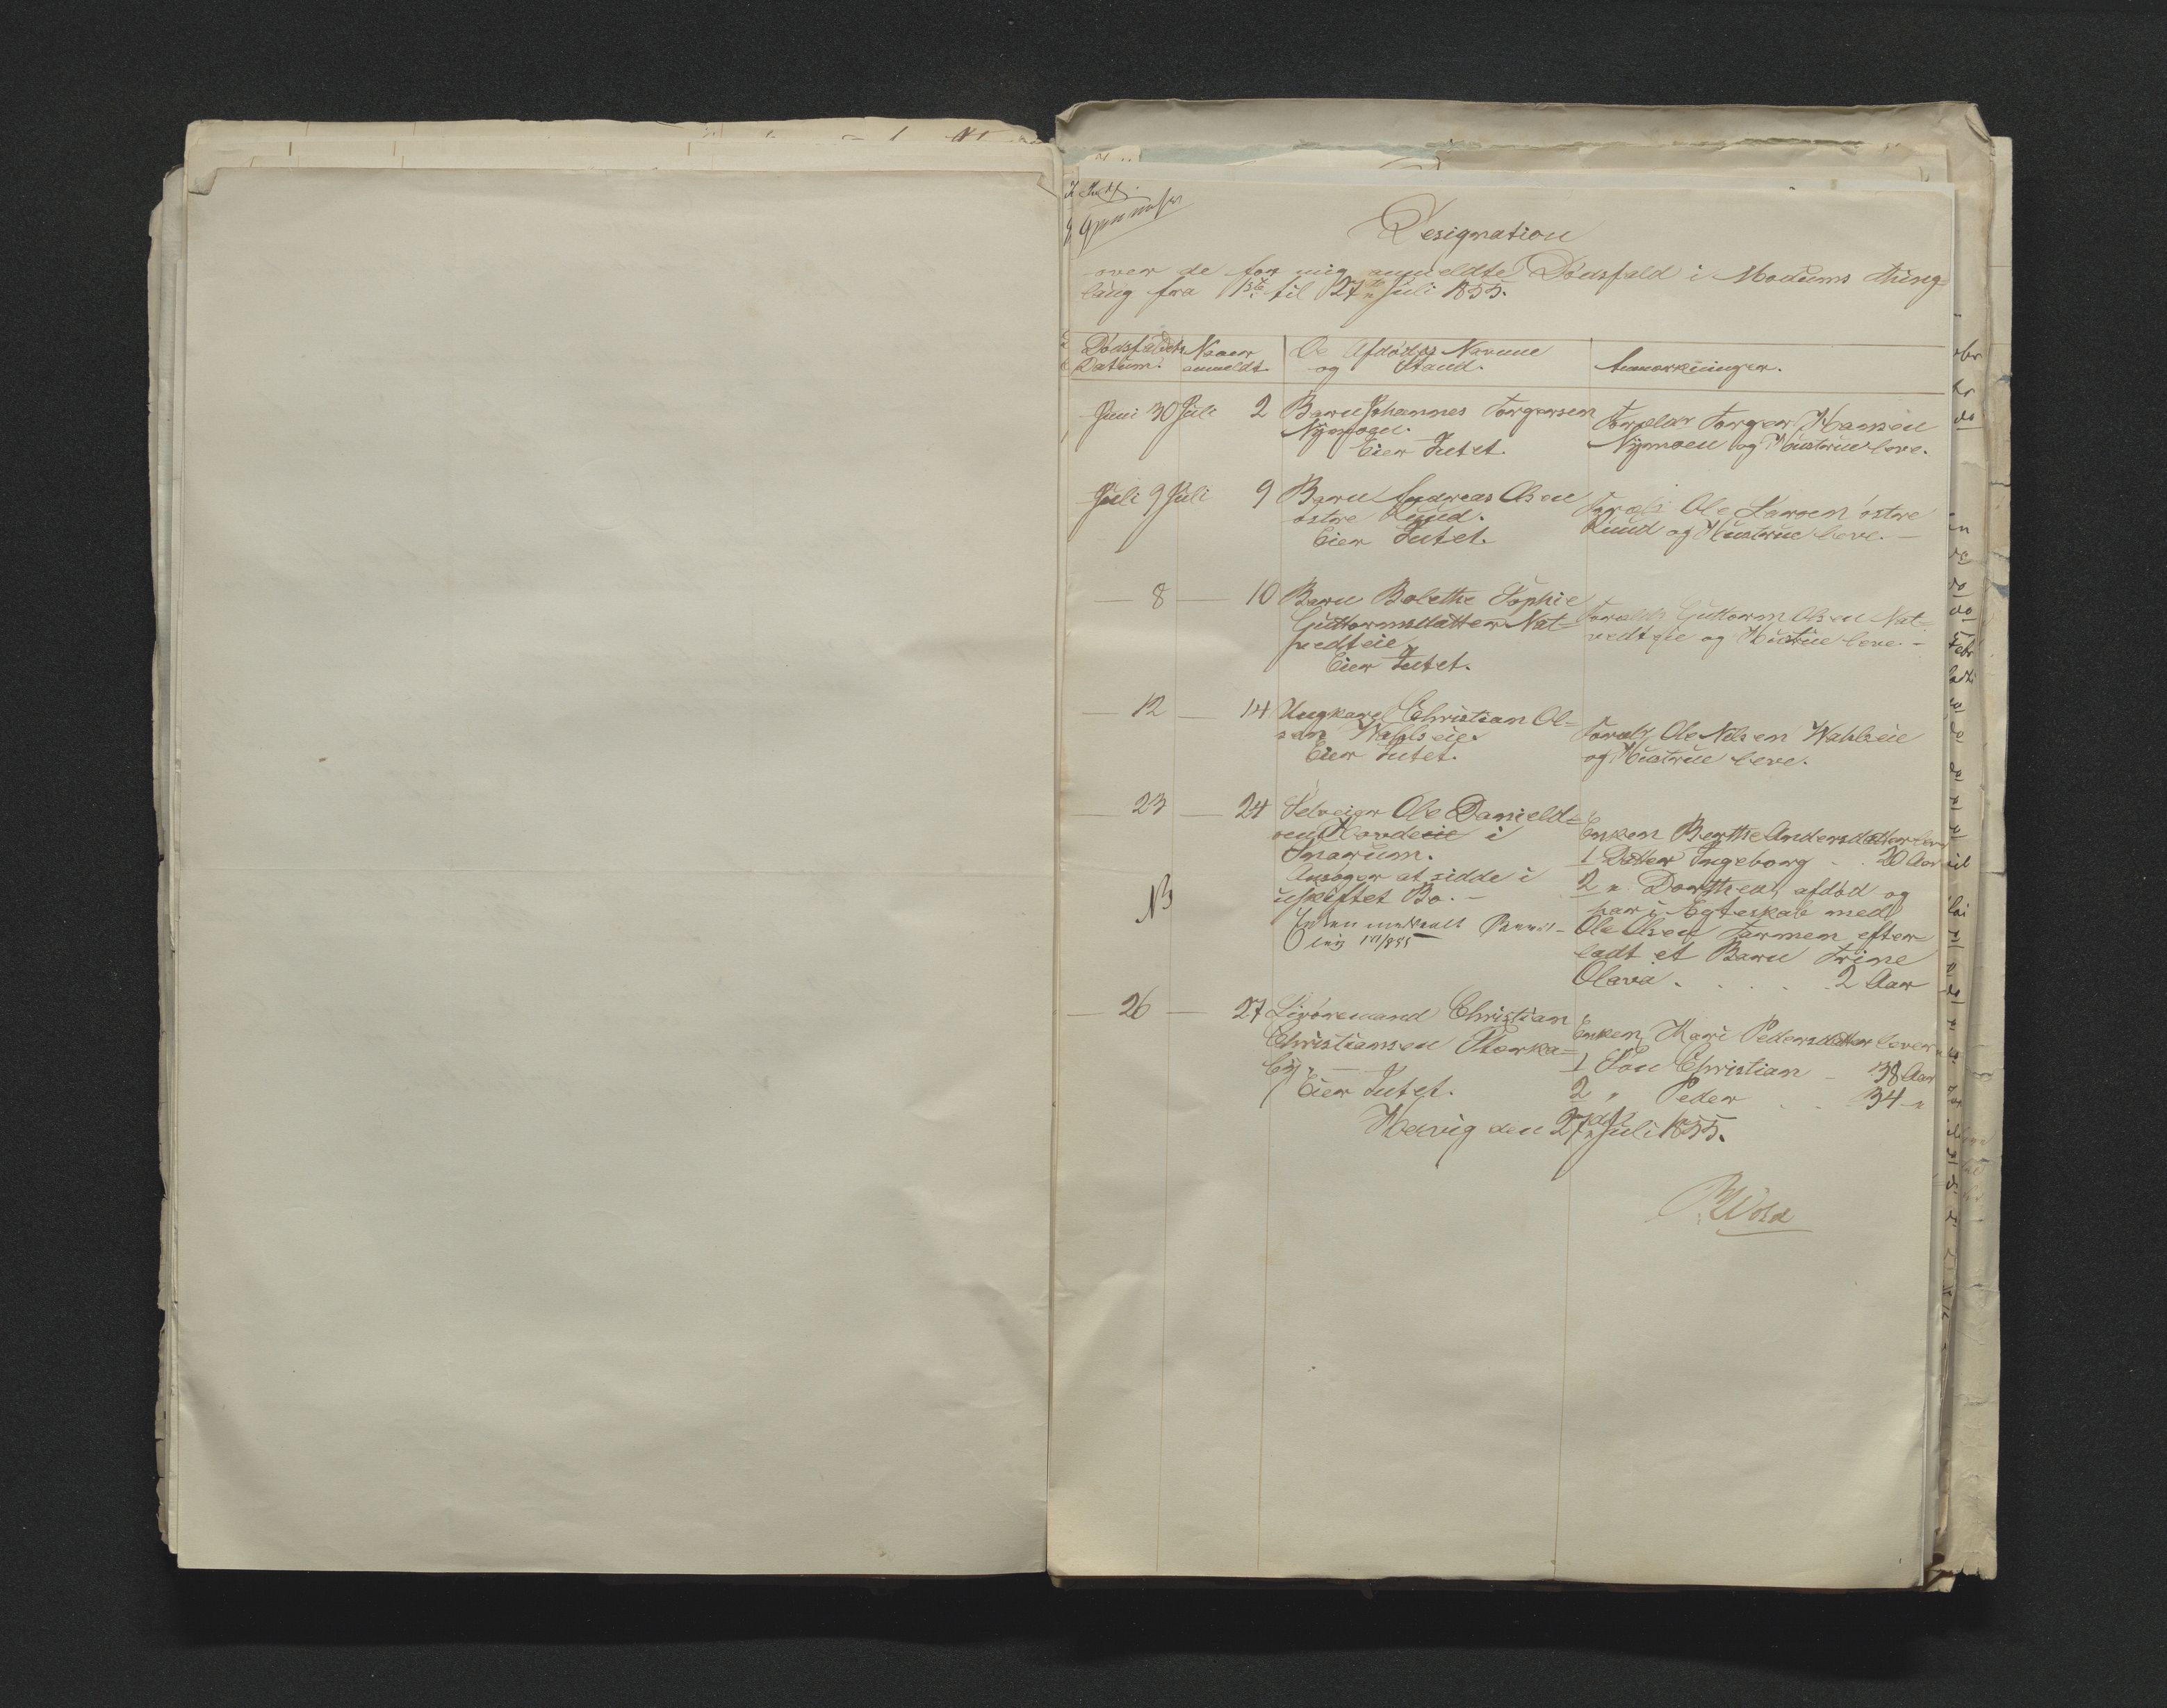 Designation
over de for mig anmeldte Dødsfald i Modums Thing-
laug fra 1ste til 27de Juli 1855.
Dødsfaldets Datum.
Naar anmeldt.
De Afdødes Navne og Stand.
Anmærkninger.
Juni 30 Juli 2 Barn Johannes Torgersen
Nymoen.
Eier Intet.
Forældr Torger Hansen
Nymoen og Hustrue leve.
Juli 9 Juli 9 Barn Andreas Olsen
østre Ruud.
Eier Intet.
Foræld. Ole Larsen østre
Ruud og Hustrue leve. —
— 8 — 10 Barn Bolethe Sophie
Guttormsdatter Nat-
vedteie.
Eier Intet.
Foræld. Guttorm Olsen Nat-
vedteie og Hustrue leve. —
— 12 — 14 Ungkarl Christian Ol-
sen Wahlseie.
Eier Intet.
Foræld. Ole Nilsen Wahlseie
og Hustrue leve.
— 23 — 24 Selveier Ole Danield-
sen Hovdeeie i
Snarum.
Ansøger at sidde i
uskiftet Bo. —
NB
Enken Berthe Andersdatter lever
1 Datter Ingeborg - . 20 Aar
2 " Dorthea, afdød og
har i Egteskab med
Ole Olsen Formen efter-
ladt et Barn Trine
Olava . . . . . 2 Aar
— 26 — 27 Livøremand Christian
Christiansen Storka-
by. —
Eier Intet.
Enken Mari Pedersdatter lever
1 Søn Christian - 38 Aar
2 " Peder . . 34 "
Hævig den 27de Juli 1855.
P. Wold